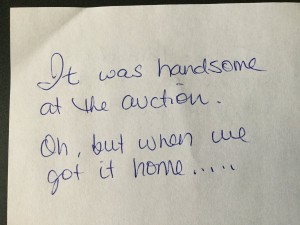 It was handsome
at the auction.
Oh, but when we
got it home.....